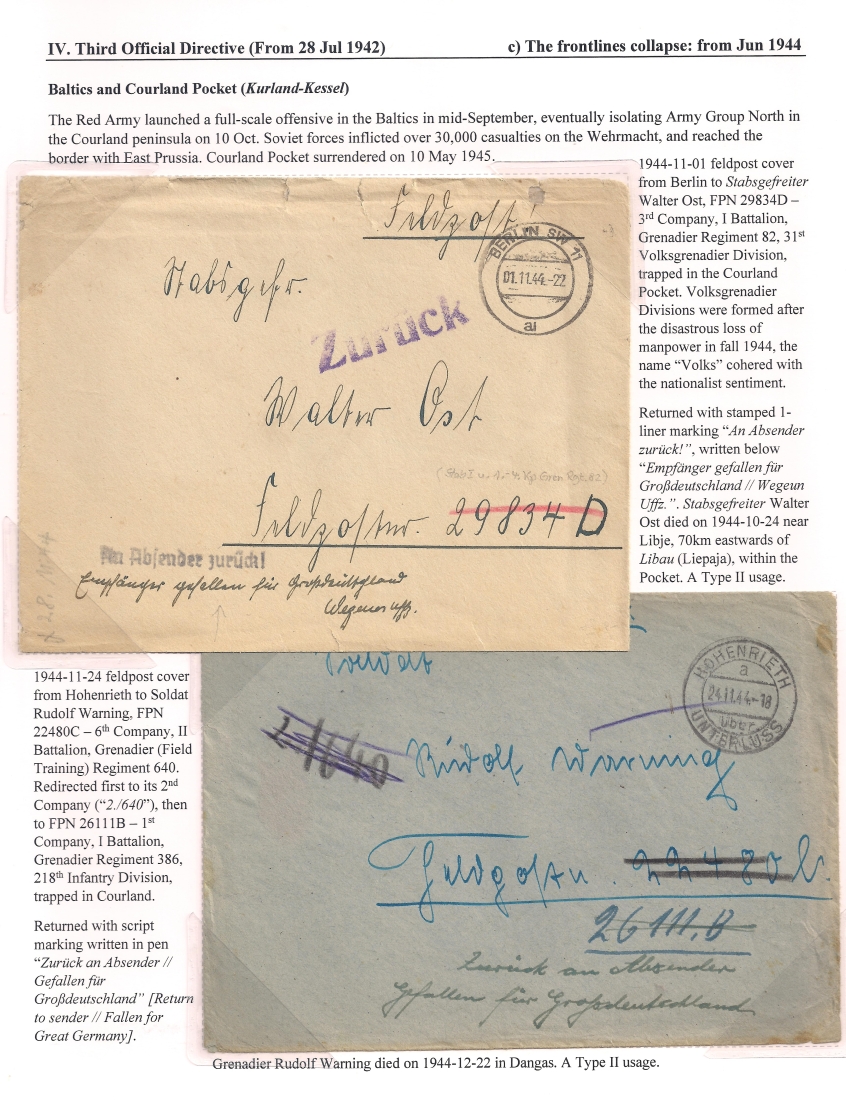 IV. Third Official Directive (From 28 Jul 1942)
c) The frontlines collapse: from Jun 1944
Baltics and Courland Pocket (Kurland-Kessel)
The Red Army launched a full-scale offensive in the Baltics in mid-September, eventually isolating Army Group North in
the Courland peninsula on 10 Oct. Soviet forces inflicted over 30,000 casualties on the Wehrmacht, and reached the
border with East Prussia. Courland Pocket surrendered on 10 May 1945.
1944-11-01 feldpost cover
from Berlin to Stabsgefreiter
Walter Ost, FPN 29834D –
3rd Company, I Battalion,
Grenadier Regiment 82, 31st
Volksgrenadier Division,
trapped in the Courland
Pocket. Volksgrenadier
Divisions were formed after
the disastrous loss of
manpower in fall 1944, the
name “Volks” cohered with
the nationalist sentiment.
Returned with stamped 1-
liner marking “An Absender
zurück!”, written below
“Empfänger gefallen für
Großdeutschland // Wegeun
Uffz.”. Stabsgefreiter Walter
Ost died on 1944-10-24 near
Libje, 70km eastwards of
Libau (Liepaja), within the
Pocket. A Type II usage.
Feldpost!
BERLIN SW 11
01.11.44.-22
ai
Stabsgefr.
Zurück
Walter Ost
(Stab I u. 1.-4. Kp Gren Rgt. 82)
Feldpostnr. 29834 D
An Absender zurück!
Empfänger gefallen für Großdeutschland
Wegener Uffz.
1944-11-24 feldpost cover
from Hohenrieth to Soldat
Rudolf Warning, FPN
22480C – 6th Company, II
Battalion, Grenadier (Field
Training) Regiment 640.
Redirected first to its 2nd
Company (“2./640”), then
to FPN 26111B – 1st
Company, I Battalion,
Grenadier Regiment 386,
218th Infantry Division,
trapped in Courland.
Returned with script
marking written in pen
“Zurück an Absender //
Gefallen für
Großdeutschland” [Return
to sender // Fallen for
Great Germany].
Soldat
HOHENRIETH
a
24.11.44.-18
über
UNTERLÜSS
2/640
Rudolf Warning
Feldpostn. 22480 C.
26111.B
Zurück an Absender
Gefallen für Großdeutschland
Grenadier Rudolf Warning died on 1944-12-22 in Dangas. A Type II usage.